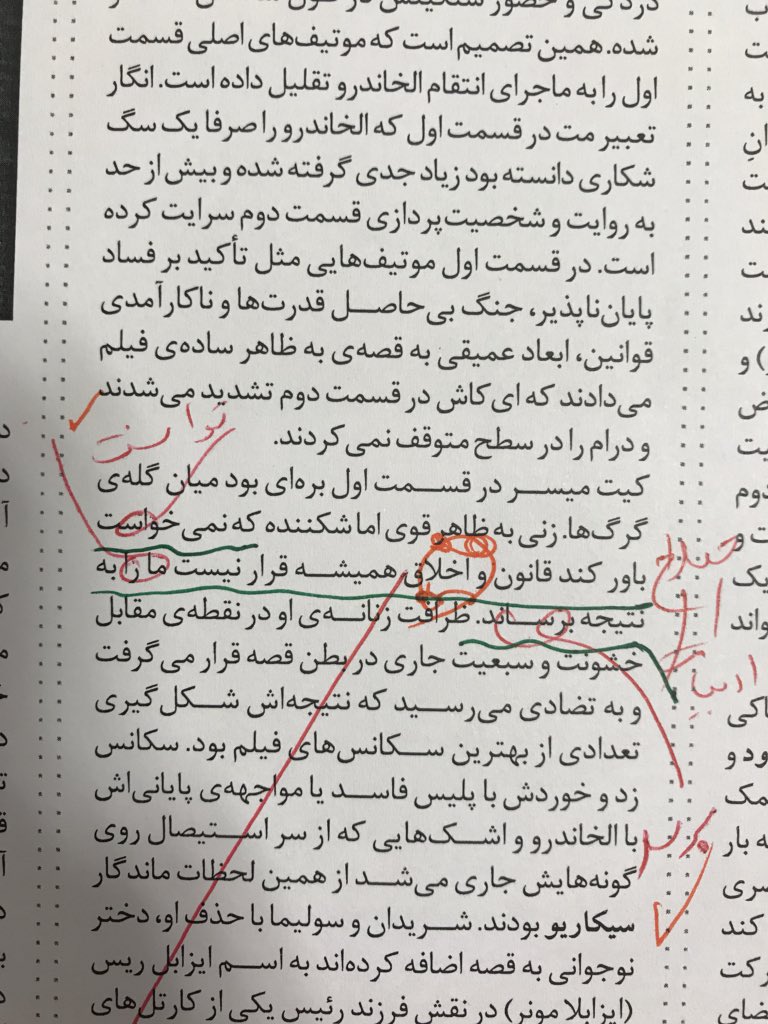 دردگی و حضور سنگینش در طول
شده. همین تصمیم است که موتیف‌های اصلی قسمت
اول را به ماجرای انتقام الخاندرو تقلیل داده است. انگار
تعبیر مت در قسمت اول که الخاندرو را صرفا یک سگ
شکاری دانسته بود زیاد جدی گرفته شده و بیش از حد
به روایت و شخصیت‌پردازی قسمت دوم سرایت کرده
است. در قسمت اول موتیف‌هایی مثل تأکید بر فساد
پایان‌ناپذیر، جنگ بی‌حاصل قدرت‌ها و ناکارآمدی
قوانین، ابعاد عمیقی به قصه‌ی به ظاهر ساده‌ی فیلم
می‌دادند که ای کاش در قسمت دوم تشدید می‌شدند
و درام را در سطح متوقف نمی‌کردند.
توانست
کیت میسر در قسمت اول بره‌ای بود میان گله‌ی
گرگ‌ها. زنی به ظاهر قوی اما شکننده که نمی‌خواست
باور کند قانون و اخلاق همیشه قرار نیست ما را به
نتیجه برساند. ظرافت زنانه‌ی او در نقطه‌ی مقابل
خشونت و سبعیت جاری در بطن قصه قرار می‌گرفت
و به تضادی می‌رسید که نتیجه‌اش شکل‌گیری
تعدادی از بهترین سکانس‌های فیلم بود. سکانس
زد و خوردش با پلیس فاسد یا مواجهه‌ی پایانی‌اش
با الخاندرو و اشک‌هایی که از سر استیصال روی
گونه‌هایش جاری می‌شد از همین لحظات ماندگار
سیکاریو بودند. شریدان و سولیما با حذف او، دختر
نوجوانی به قصه اضافه کرده‌اند به اسم ایزابل ریس
(ایزابلا مونر) در نقش فرزند رئیس یکی از کارتل‌های